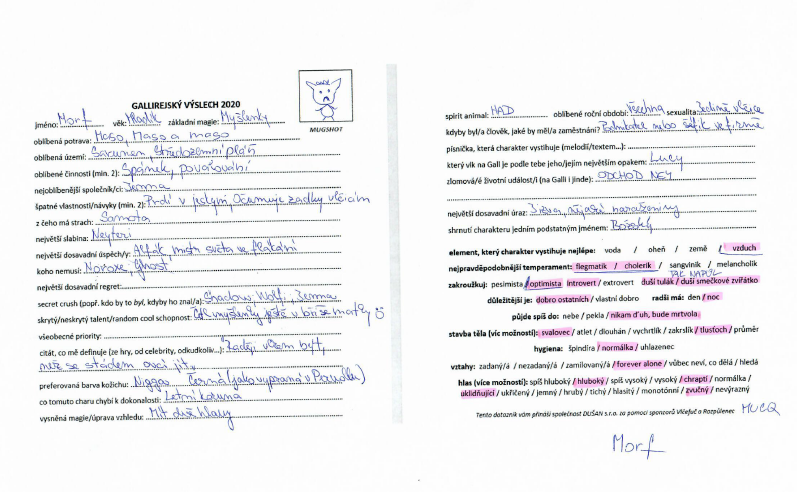 GALLIREJSKÝ VÝSLECH 2020
MUGSHOT
jméno: Morf věk: Mladík základní magie: Myšlenky
oblíbená potrava: Maso, Maso a maso
oblíbená území: Sarumen, Středozemní pláň
oblíbené činnosti (min. 2): Spánek, povalování
nejoblíbenější společník/ci: Jenna
špatné vlastnosti/návyky (min. 2): Prdí v jeskyni, Očumuje zadky vlčicím
z čeho má strach: Samota
největší slabina: Neyteri
největší dosavadní úspěch/y: Alfák, mistr světa ve flákání
koho nemusí: Noroxe, Ghost
největší dosavadní regret:
secret crush (popř. kdy by to byl, kdyby ho znal/a): Shadow Wolf, Jenna
skrytý/neskrytý talent/random cool schopnost: myšlenky ještě v břiše matky
všeobecné priority:
citát, co mě definuje (ze hry, od celebrity, odkudkoliv...): Raději vlkem být,
než se stádem ovcí jít.
preferovaná barva kožichu: Černá (jako vypraná v Perwollu)
co tomuto charu chybí k dokonalosti: Letní koruna
vysněná magie/úprava vzhledu: Mít dvě hlavy
spirit animal: HAD oblíbené roční období: Všechna sexualita: Jedině vlčice
kdyby byl/a člověk, jaké by měl/a zaměstnání? Politik nebo šéfík ve firmě
písnička, která charakter vystihuje (melodií/textem...):
který vlk na Gali je podle tebe jeho/jejím největším opakem: Lucy
zlomová/é životní událost/i (na Gali i jinde): ODCHOD NEY
největší dosavadní úraz: Jizva, nějaké naraženiny
shrnutí charakteru jedním podstatným jménem: Božský
element, který charakter vystihuje nejlépe: voda / oheň / země / vzduch
nejpravděpodobnější temperament: flegmatik / cholerik / sangvinik / melancholik
TAK NAPŮL
zakroužkuj: pesimista / optimista introvert / extrovert duší tulák / duší smečkové zvířátko
důležitější je: dobro ostatních / vlastní dobro radši má: den / noc
půjde spíš do: nebe / pekla / nikam d'uh, bude mrtvola
stavba těla (víc možností): svalovec / atlet / dlouhán / vychrtlík / zakrslík / tlusťoch / průměr
hygiena: špindíra / normálka / uhlazenec
vztahy: zadaný/á / nezadaný/á / zamilovaný/á / forever alone / vůbec neví, co dělá / hledá
hlas (více možností): spíš hluboký / hluboký / spíš vysoký / vysoký / chraptí / normálka /
uklidňující / ukřičený / jemný / hrubý / tichý / hlasitý / monotónní / zvučný / nevýrazný
Tento dotazník vám přináší společnost DUŠAN s.r.o. za pomoci sponzorů Vlčefuč a Rozpůlenec MUCQ
Morf